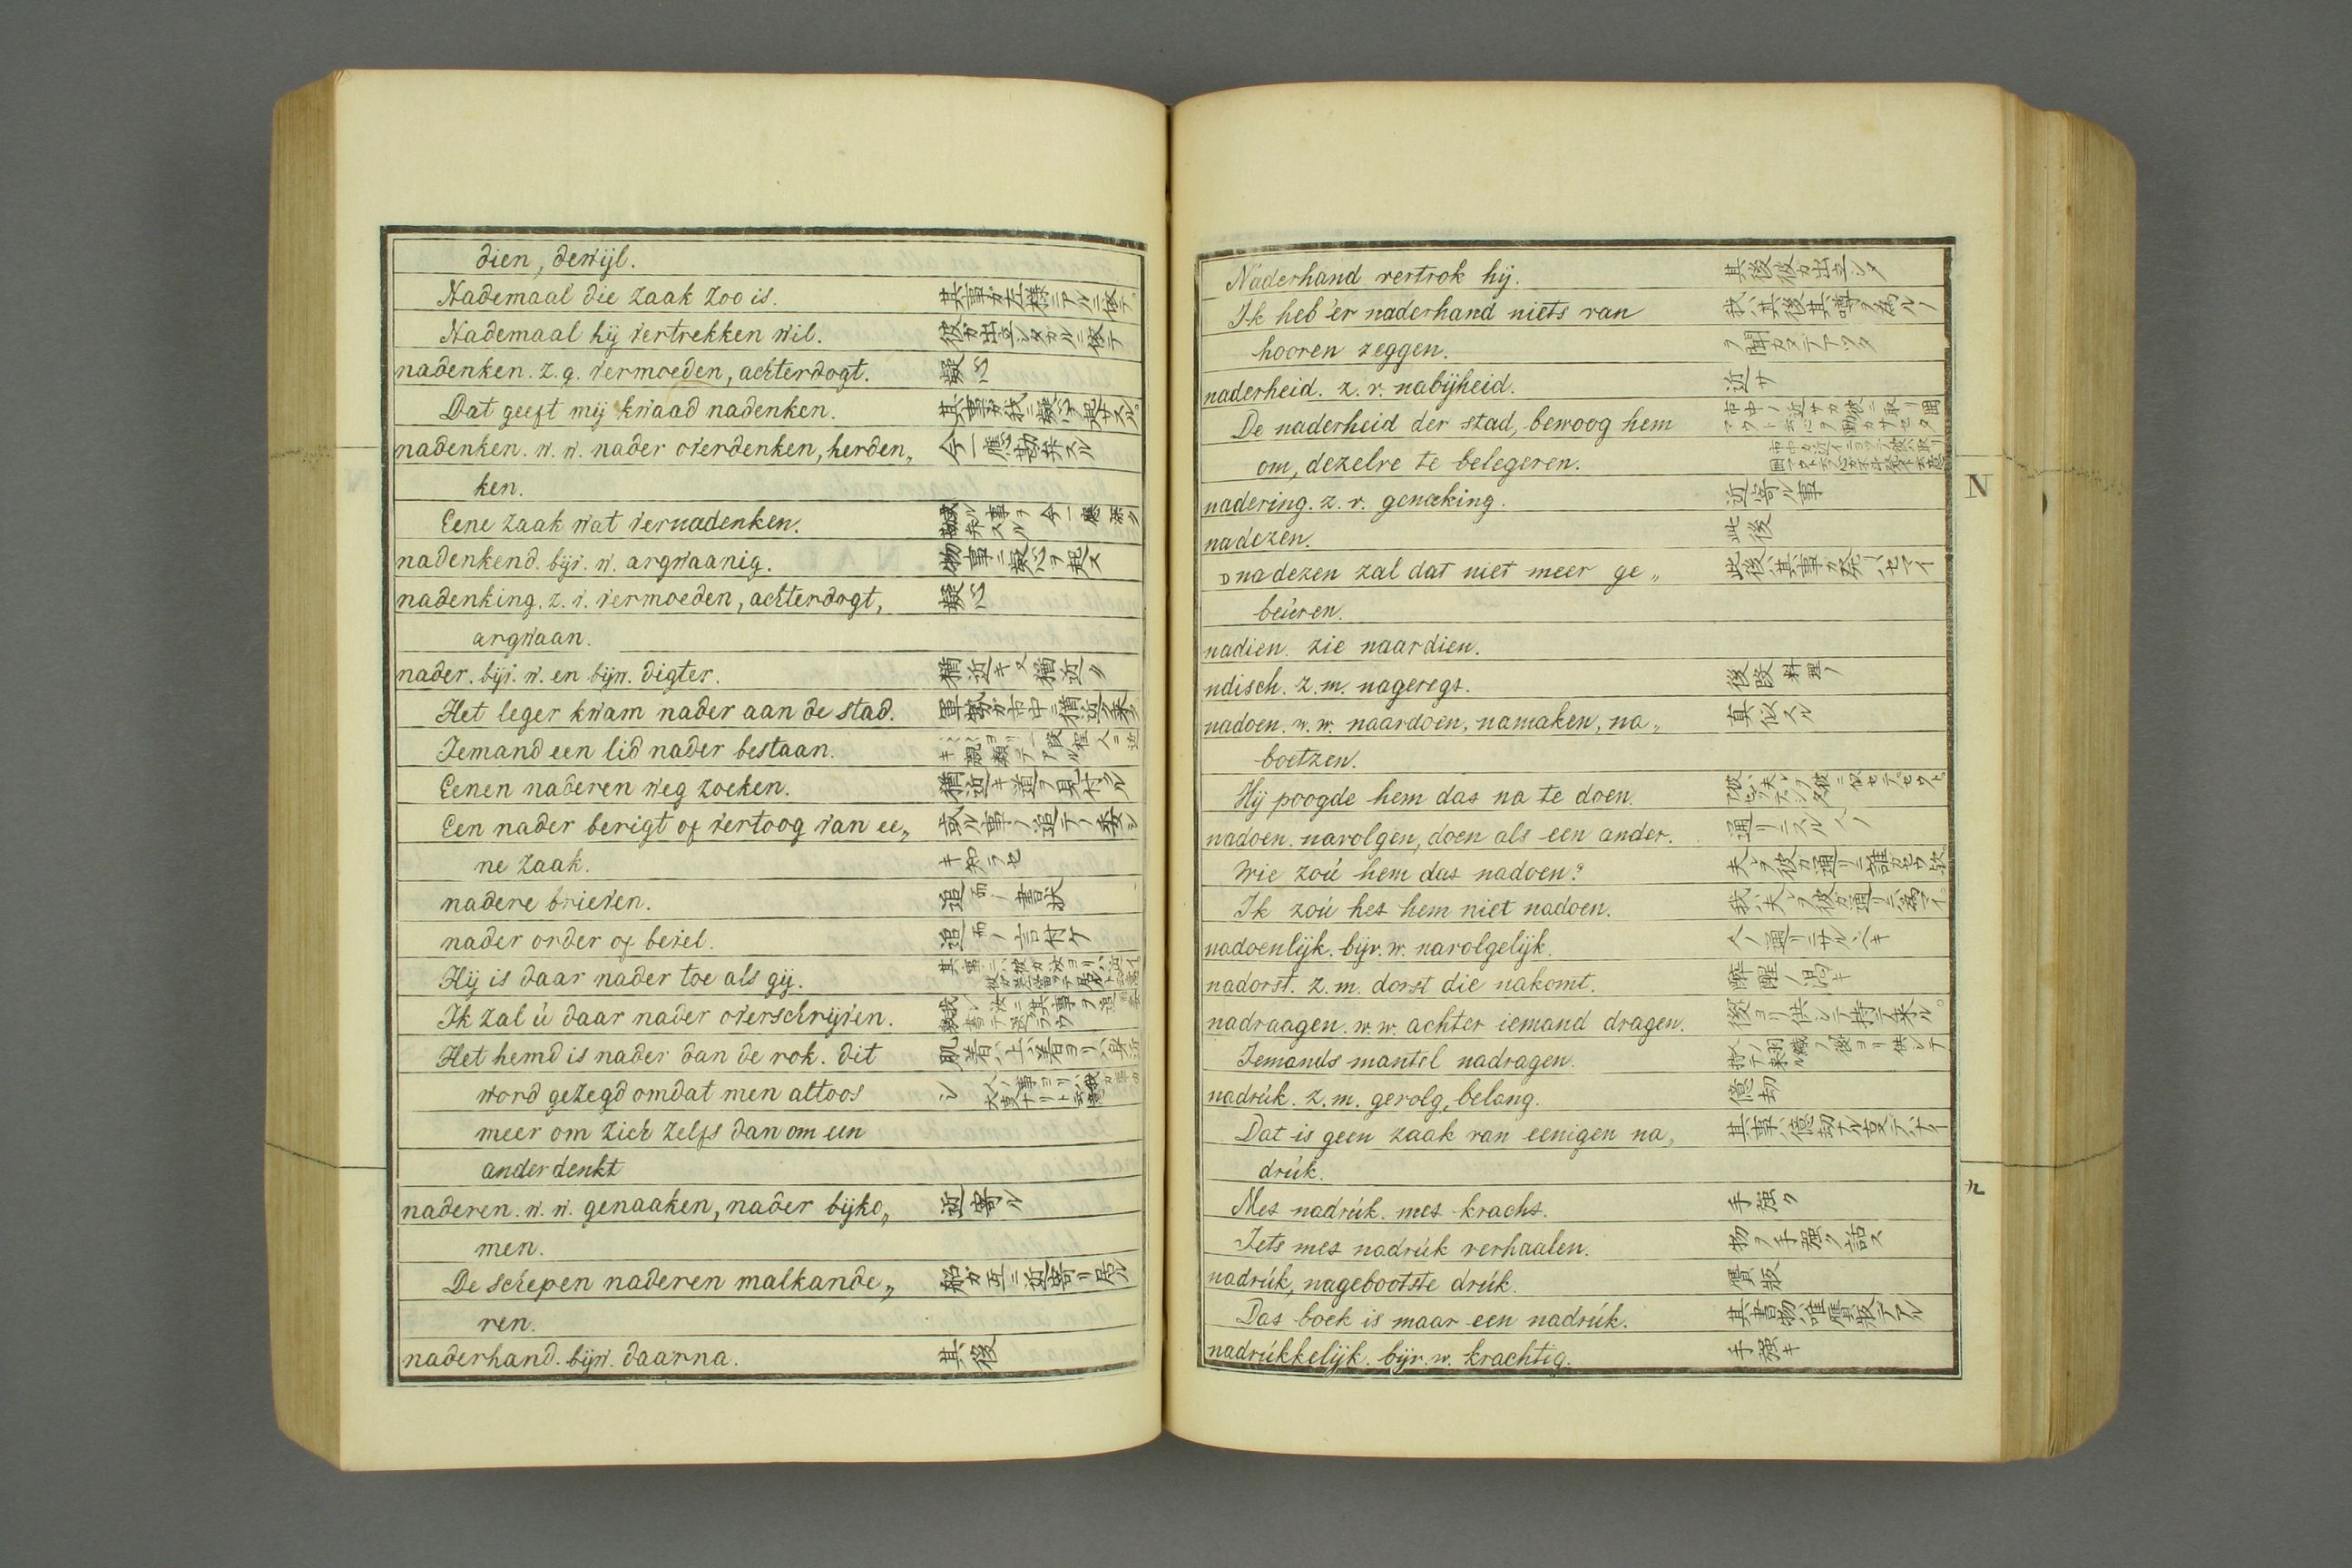 dien, dewijl.
Nademaal die zaak zoo is. 其事ガ左様ニアルニ依テ。
Nademaal hij vertrekken wil. 彼ガ出立シタガルニ依テ
nadenken. z. g. vermoeden, achterdogt. 疑心
Dat geeft mij kwaad nadenken. 其事ガ我ニ疑心ヲ起サスル。
nadenken. w. w. nader overdenken, herden„ 今一應勘弁スル
ken.
Eene zaak wat vernadenken. 或ル事ヲ今一應
勘弁スル
nadenkend. bijv. w. argwaanig. 物事ニ疑心ヲ起ス
nadenking. z. v. vermoeden, achterdogt, 疑心
argwaan.
nader. bijv. w. en bijw. digter. 猶近キ又猶近ク
Het leger kwam nader aan de stad. 軍勢ガ市中ニ猶近ク来タ
Iemand een lid nader bestaan. 一段程人ニ近
キ親類テアル
Eenen naderen weg zoeken. 猶近キ道ヲ見付ル
Een nader berigt of vertoog van ee„ 或ル事ノ追テノ委シ
ne zaak. キ知ラセ
nadere brieven. 追而ノ書状
nader order of bevel. 追而ノ言付ケ
Hij is daar nader toe als gij. 其事ニハ彼ガ汝ヨリハ近イ
Ik zal ù daar nader overschrijven. 我汝ニ其事ヲ追
書テ送ラウ
Het hemd is nader dan de rok. dit 肌着ハ上着ヨリハ身近
word gezegd omdat men altoos シ
meer om zich zelfs dan om een
ander denkt
naderen. w. w. genaaken, nader bijko„ 近寄ル
men.
De schepen naderen malkande„ 船ガ互ニ近寄リ居ル
ren.
naderhand. bijw. daarna. 其後
Naderhand vertrok hij. 其後彼ガ出立シタ
Ik heb 'er naderhand niets van 我ハ其後其噂ヲ為ル
hooren zeggen. ヲ聞カナンタ
naderheid. z. v. nabijheid. 近サ
De naderheid der stad, bewoog hem 市中ノ近サガ彼ニ取リ囲
マウト云心ヲ動カサセタ
om, dezelve te belegeren.
nadering. z. v. genaeking. 近寄ル事
nadezen. 此後
nadezen zal dat niet meer ge„ 此後ハ其事ガ発リハセマイ
beùren.
nadien. zie naardien.
ndisch. z. m. nageregt. 後段料理ノ
nadoen. w. w. naardoen, namaken, na„ 真似スル
boetzen.
Hij poogde hem dat na te doen.
nadoen. navolgen, doen als een ander. 通リニスル人ノ
Wie zoù hem dat nadoen? 夫レヲ彼ガ通リニ誰ガセウ歟。
Ik zoù het hem niet nadoen. 我ハ夫レヲ彼ガ通リニハ為マイ。
nadoenlijk. bijv. w. navolgelijk. 人ノ通リニサルヘキ
nadorst. z. m. dorst die nakomt. 酔醒ノ渇キ
nadraagen. w. w. achter iemand dragen. 後ヨリ供シテ持テ来ル。
Iemands mantel nadragen. 人ノ羽織ヲ後ヨリ供シテ
持テ来ル
nadrùk. z. m. gevolg, belang. 億劫
Dat is geen zaak van eenigen na„ 其事ハ億劫ナル事テハナイ
drùk.
Met nadrùk. met kracht. 手強ク
Iets met nadrùk verhaalen. 物ヲ手強ク話ス
nadrùk, nagebootste drùk. 贋版
Dat boek is maar een nadrùk. 其書物ハ唯贋版テアル
nadrùkkelijk. bijv. w. krachtig. 手強キ
N